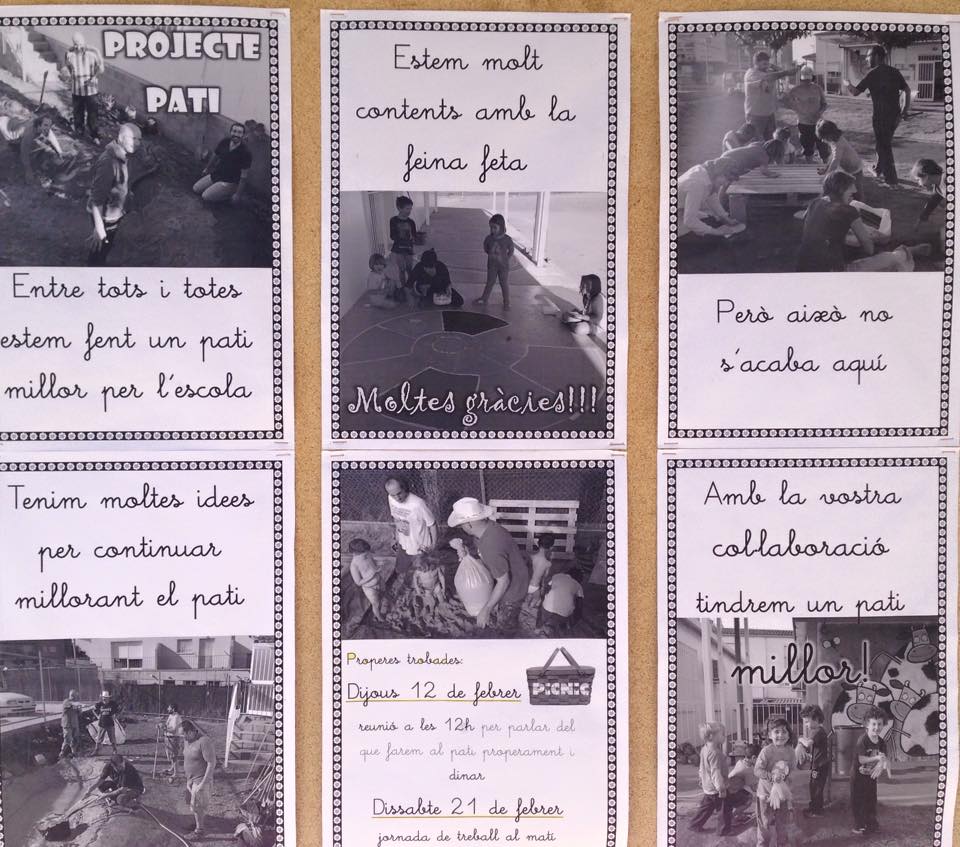 PROJECTE
PATI
Entre tots i totes
estem fent un pati
millor per l'escola
Estem molt
contents amb la
feina feta
Moltes gràcies!!!
Però això no
s'acaba aquí
Tenim moltes idees
per continuar
millorant el pati
Properes trobades:
PICNIC
Dijous 12 de febrer
reunió a les 12h per parlar del
que farem al pati properament i
dinar
Dissabte 21 de febrer
jornada de treball al matí
Amb la vostra
col·laboració
tindrem un pati
millor!